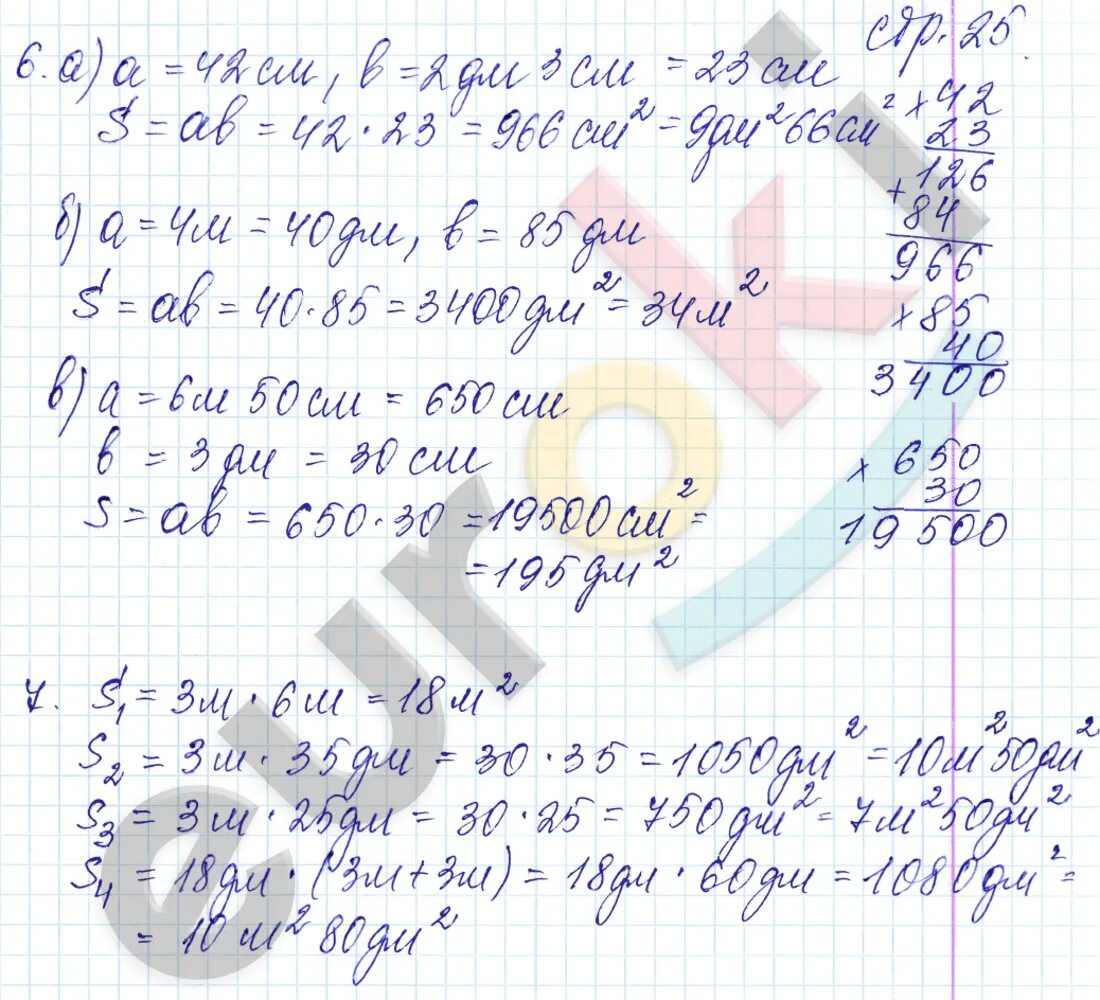 стр. 25
6. а) a = 42 см, b = 2 дм 3 см = 23 см
S = ab = 42 · 23 = 966 см² = 9 дм² 66 см²
× 42
23
+ 126
84
966
б) a = 4 м = 40 дм, b = 85 дм
S = ab = 40 · 85 = 3400 дм² = 34 м²
× 85
40
3400
в) a = 6 м 50 см = 650 см
b = 3 дм = 30 см
S = ab = 650 · 30 = 19500 см² =
= 195 дм²
× 650
30
19500
7. S₁ = 3 м · 6 м = 18 м²
S₂ = 3 м · 35 дм = 30 · 35 = 1050 дм² = 10 м² 50 дм²
S₃ = 3 м · 25 дм = 30 · 25 = 750 дм² = 7 м² 50 дм²
S₄ = 18 дм · (3 м + 3 м) = 18 дм · 60 дм = 1080 дм² =
= 10 м² 80 дм²
euroki